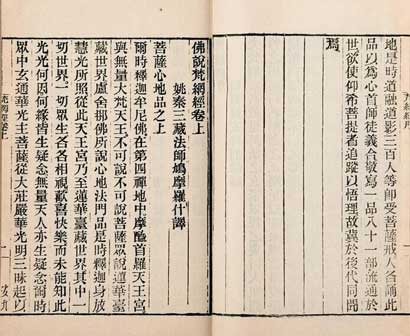 地是時道融道影三百人等即受菩薩戒人各誦此
品以為心首師徒義合敬寫一品八十一部流通於
世欲使仰希菩提者追蹤以悟理故冀於後代同聞
焉
佛說梵網經卷上
姚秦三藏法師鳩摩羅什譯
菩薩心地品之上
爾時釋迦牟尼佛在第四禪地中摩醯首羅天王宮
與無量大梵天王不可說不可說菩薩眾說蓮華臺
藏世界盧舍那佛所說心地法門品是時釋迦身放
慧光所照從此天王宮乃至蓮華臺藏世界其中一
切世界一切眾生各各相視歡喜快樂而未能知此
光光何因何緣皆生疑念無量天人亦生疑念爾時
眾中玄通華光主菩薩從大莊嚴華光明三昧起以
梵網經卷上
一